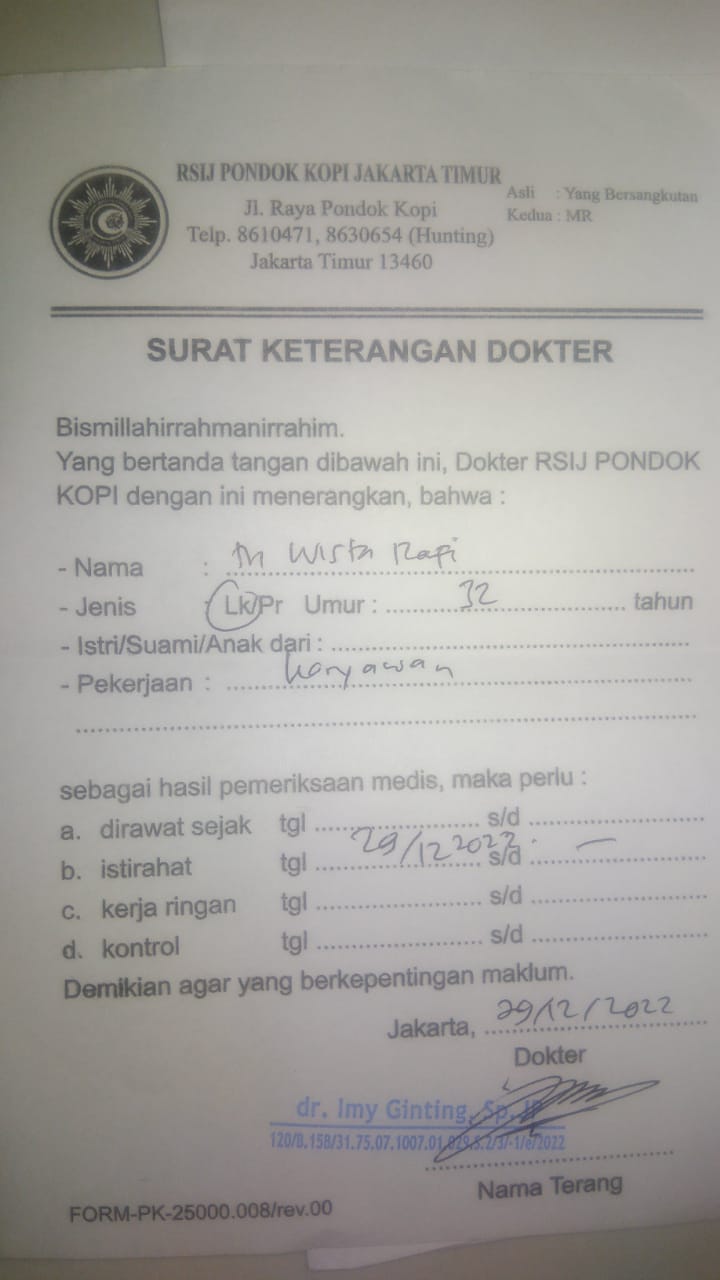 RSIJ PONDOK KOPI JAKARTA TIMUR
Jl. Raya Pondok Kopi
Telp. 8610471, 8630654 (Hunting)
Jakarta Timur 13460
Asli : Yang Bersangkutan
Kedua : MR
SURAT KETERANGAN DOKTER
Bismillahirrahmanirrahim.
Yang bertanda tangan dibawah ini, Dokter RSIJ PONDOK
KOPI dengan ini menerangkan, bahwa :
- Nama : Tn Wista Rafi
- Jenis : Lk/Pr Umur : 32 tahun
- Istri/Suami/Anak dari :
- Pekerjaan : karyawan
sebagai hasil pemeriksaan medis, maka perlu :
a. dirawat sejak tgl ........ s/d ........
b. istirahat tgl 29/12 2022 s/d –
c. kerja ringan tgl ........ s/d ........
d. kontrol tgl ........ s/d ........
Demikian agar yang berkepentingan maklum.
Jakarta, 29/12/2022
Dokter
dr. Imy Ginting, Sp.
120/B.158/31.75.07.1007.01
Nama Terang
FORM-PK-25000.008/rev.00